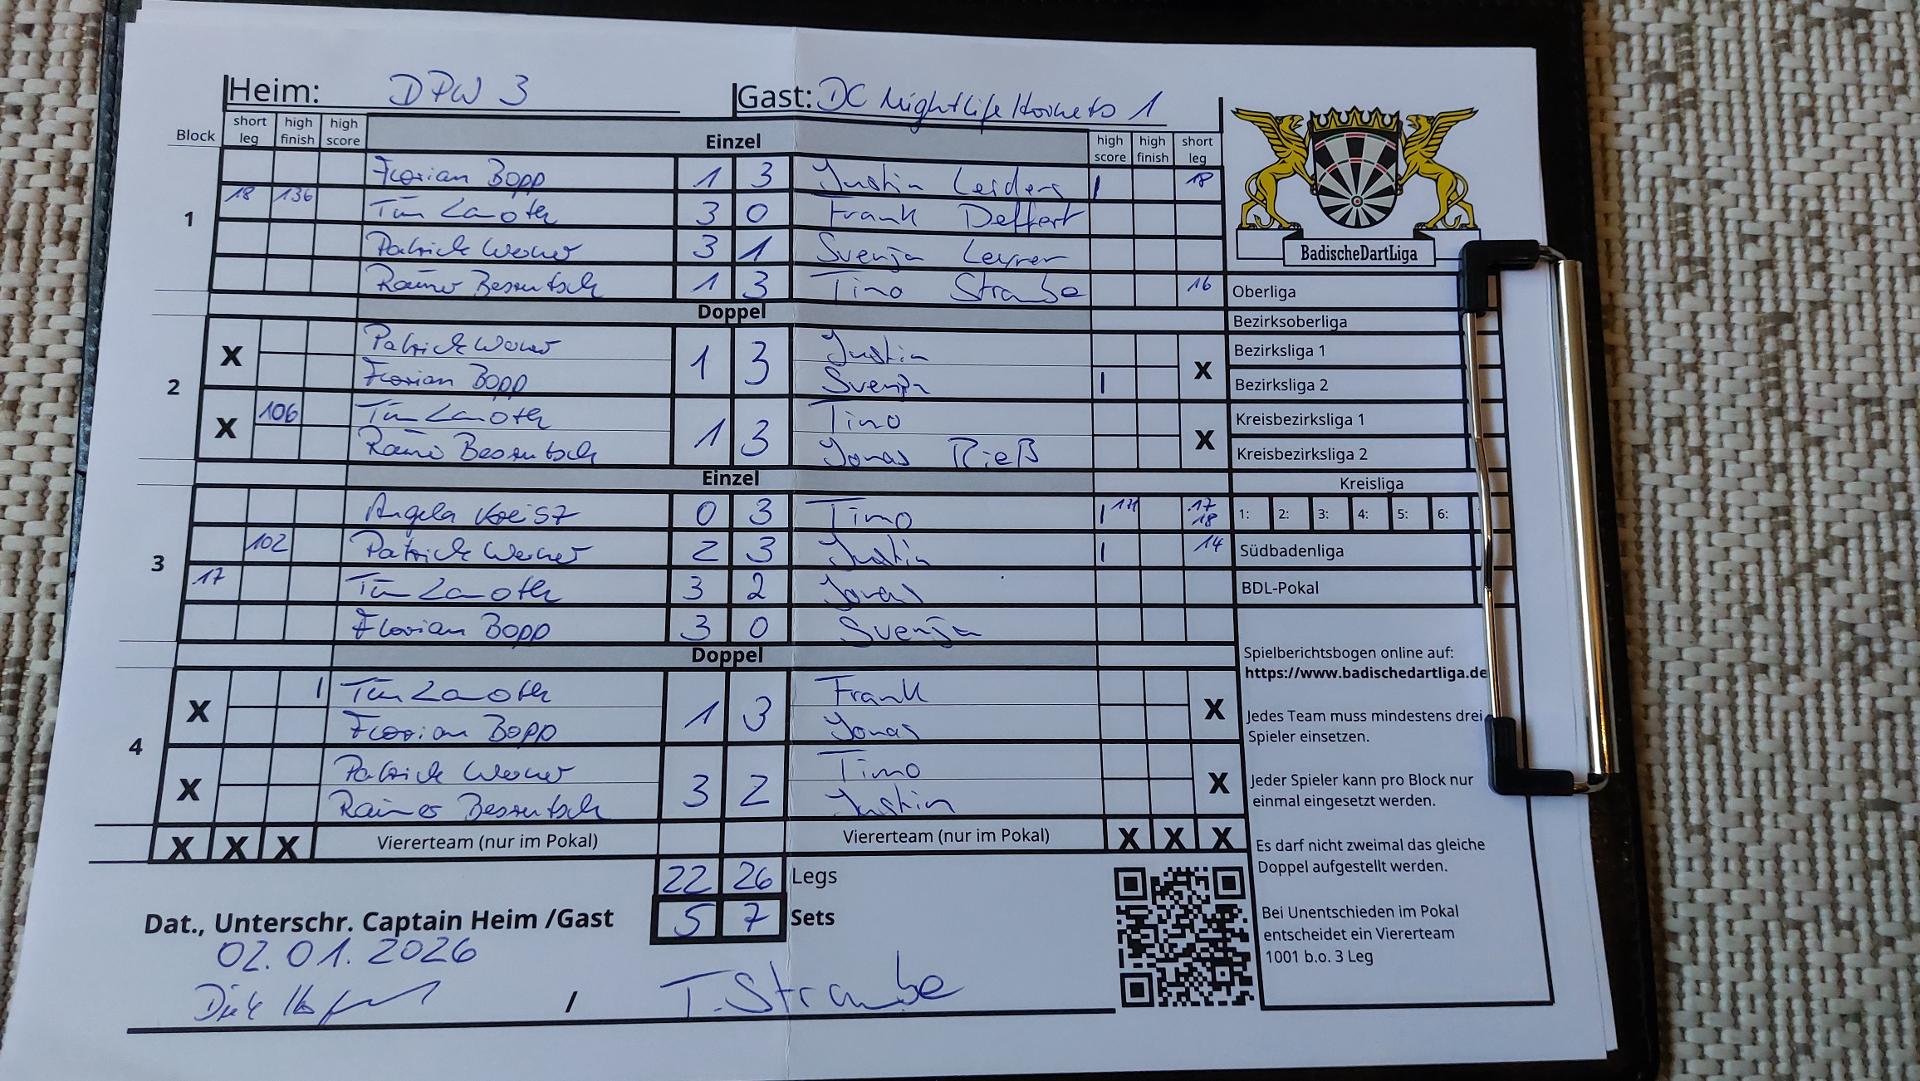 Heim: DPW 3 Gast: DC Nightlife Hornets 1
Block short leg high finish high score Einzel high score high finish short leg
1
Florian Bopp 1 3 Justin Leiders | 18
18 136 Tim Lanoth 3 0 Frank Deffert
Patrick Werner 3 1 Svenja Leyrer
Rainer Bessentsch 1 3 Tino Straube 16
BadischeDartLiga
Oberliga
Doppel
Bezirksoberliga
2
X Patrick Werner 1 3 Justin X
Florian Bopp Svenja |
X 106 Tim Lanoth 1 3 Tino X
Rainer Bessentsch Jonas Rieß
Bezirksliga 1
Bezirksliga 2
Kreisbezirksliga 1
Kreisbezirksliga 2
Einzel
Kreisliga
1: 2: 3: 4: 5: 6:
3
Angela 0 3 Timo | 171 17 18
102 Patrick Werner 2 3 Justin | 14
17 Tim Lanoth 3 2 Jonas
Florian Bopp 3 0 Svenja
Südbadenliga
BDL-Pokal
Doppel
4
X | Tim Lanoth 1 3 Frank X
Florian Bopp Jonas
X Patrick Werner 3 2 Timo X
Rainer Bessentsch Justin
X X X Viererteam (nur im Pokal) Viererteam (nur im Pokal) X X X
Spielberichtsbogen online auf:
https://www.badischedartliga.de
Jedes Team muss mindestens drei
Spieler einsetzen.
Jeder Spieler kann pro Block nur
einmal eingesetzt werden.
Es darf nicht zweimal das gleiche
Doppel aufgestellt werden.
Bei Unentschieden im Pokal
entscheidet ein Viererteam
1001 b.o. 3 Leg
22 26 Legs
5 7 Sets
Dat., Unterschr. Captain Heim /Gast
02.01.2026
Dirk / T. Straube